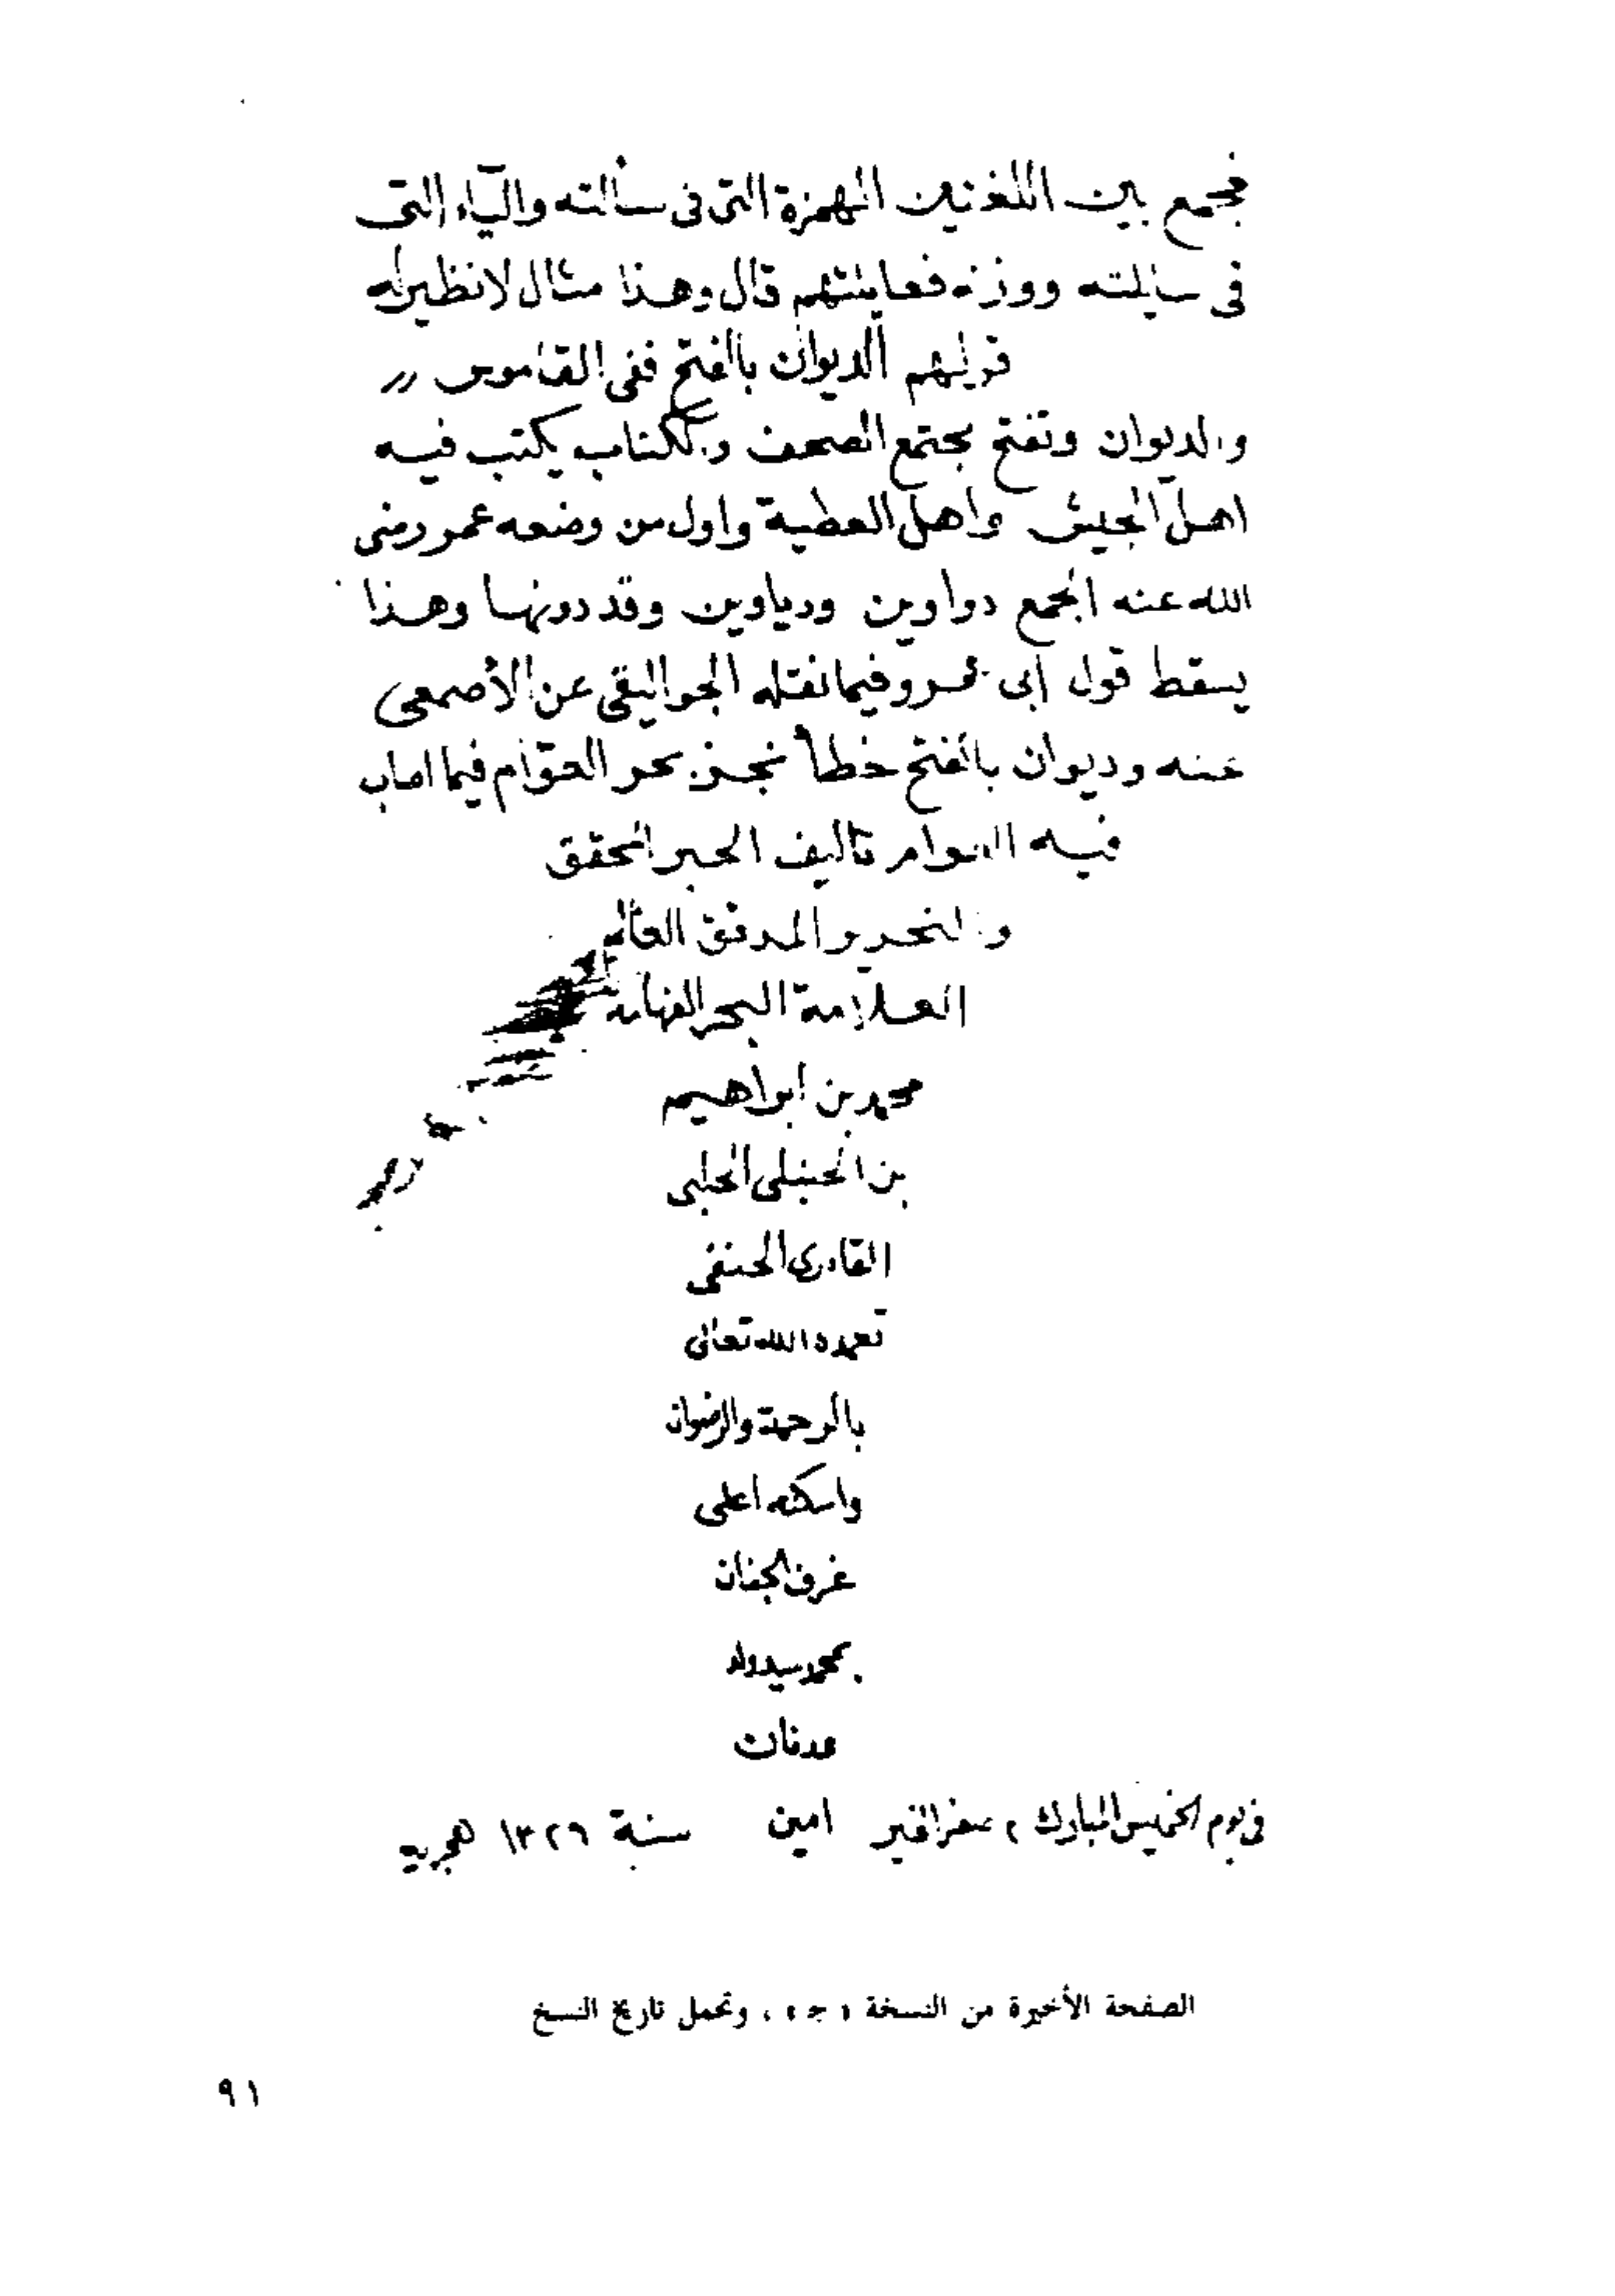 فجمع بين اللغتين الهمزة التى فى سألته والياء التى
فى سايلته ووزنه فعايلتهم قال وهذا مثال لا نظير له
قولهم الديوان بالفتح ففى القاموس
والديوان وتفتح مجتمع الصحف والكتاب يكتب فيه
اهل الجيش واهل العطية واول من وضعه عمر رضى
الله عنه الجمع دواوين ودياوين وقد دونها وهذا
يسقط قول ابى عمرو فيما نقله الجواليقى عن الأصمعى
عنه وديوان بالفتح خطأ نجز بحر العوّام فيما اصاب
فيه العوام تاليف الحبر المحقق
والنحرير المدقق العالم
العلامة البحر الفهامة
محمد بن ابراهيم
بن الحنبلى الحلبى
القادرى الحنفى
تغمده الله تعالى
بالرحمة والرضوان
واسكنه اعلى
غرف الجنان
بمحمد سيد ولد
عدنان
فى يوم الخميس المبارك ٢ صفر الخير امين سنة ١٣٢٩ هجريه
الصفحة الأخيرة من النسخة « ج » ، وتحمل تاريخ النسخ
٩١